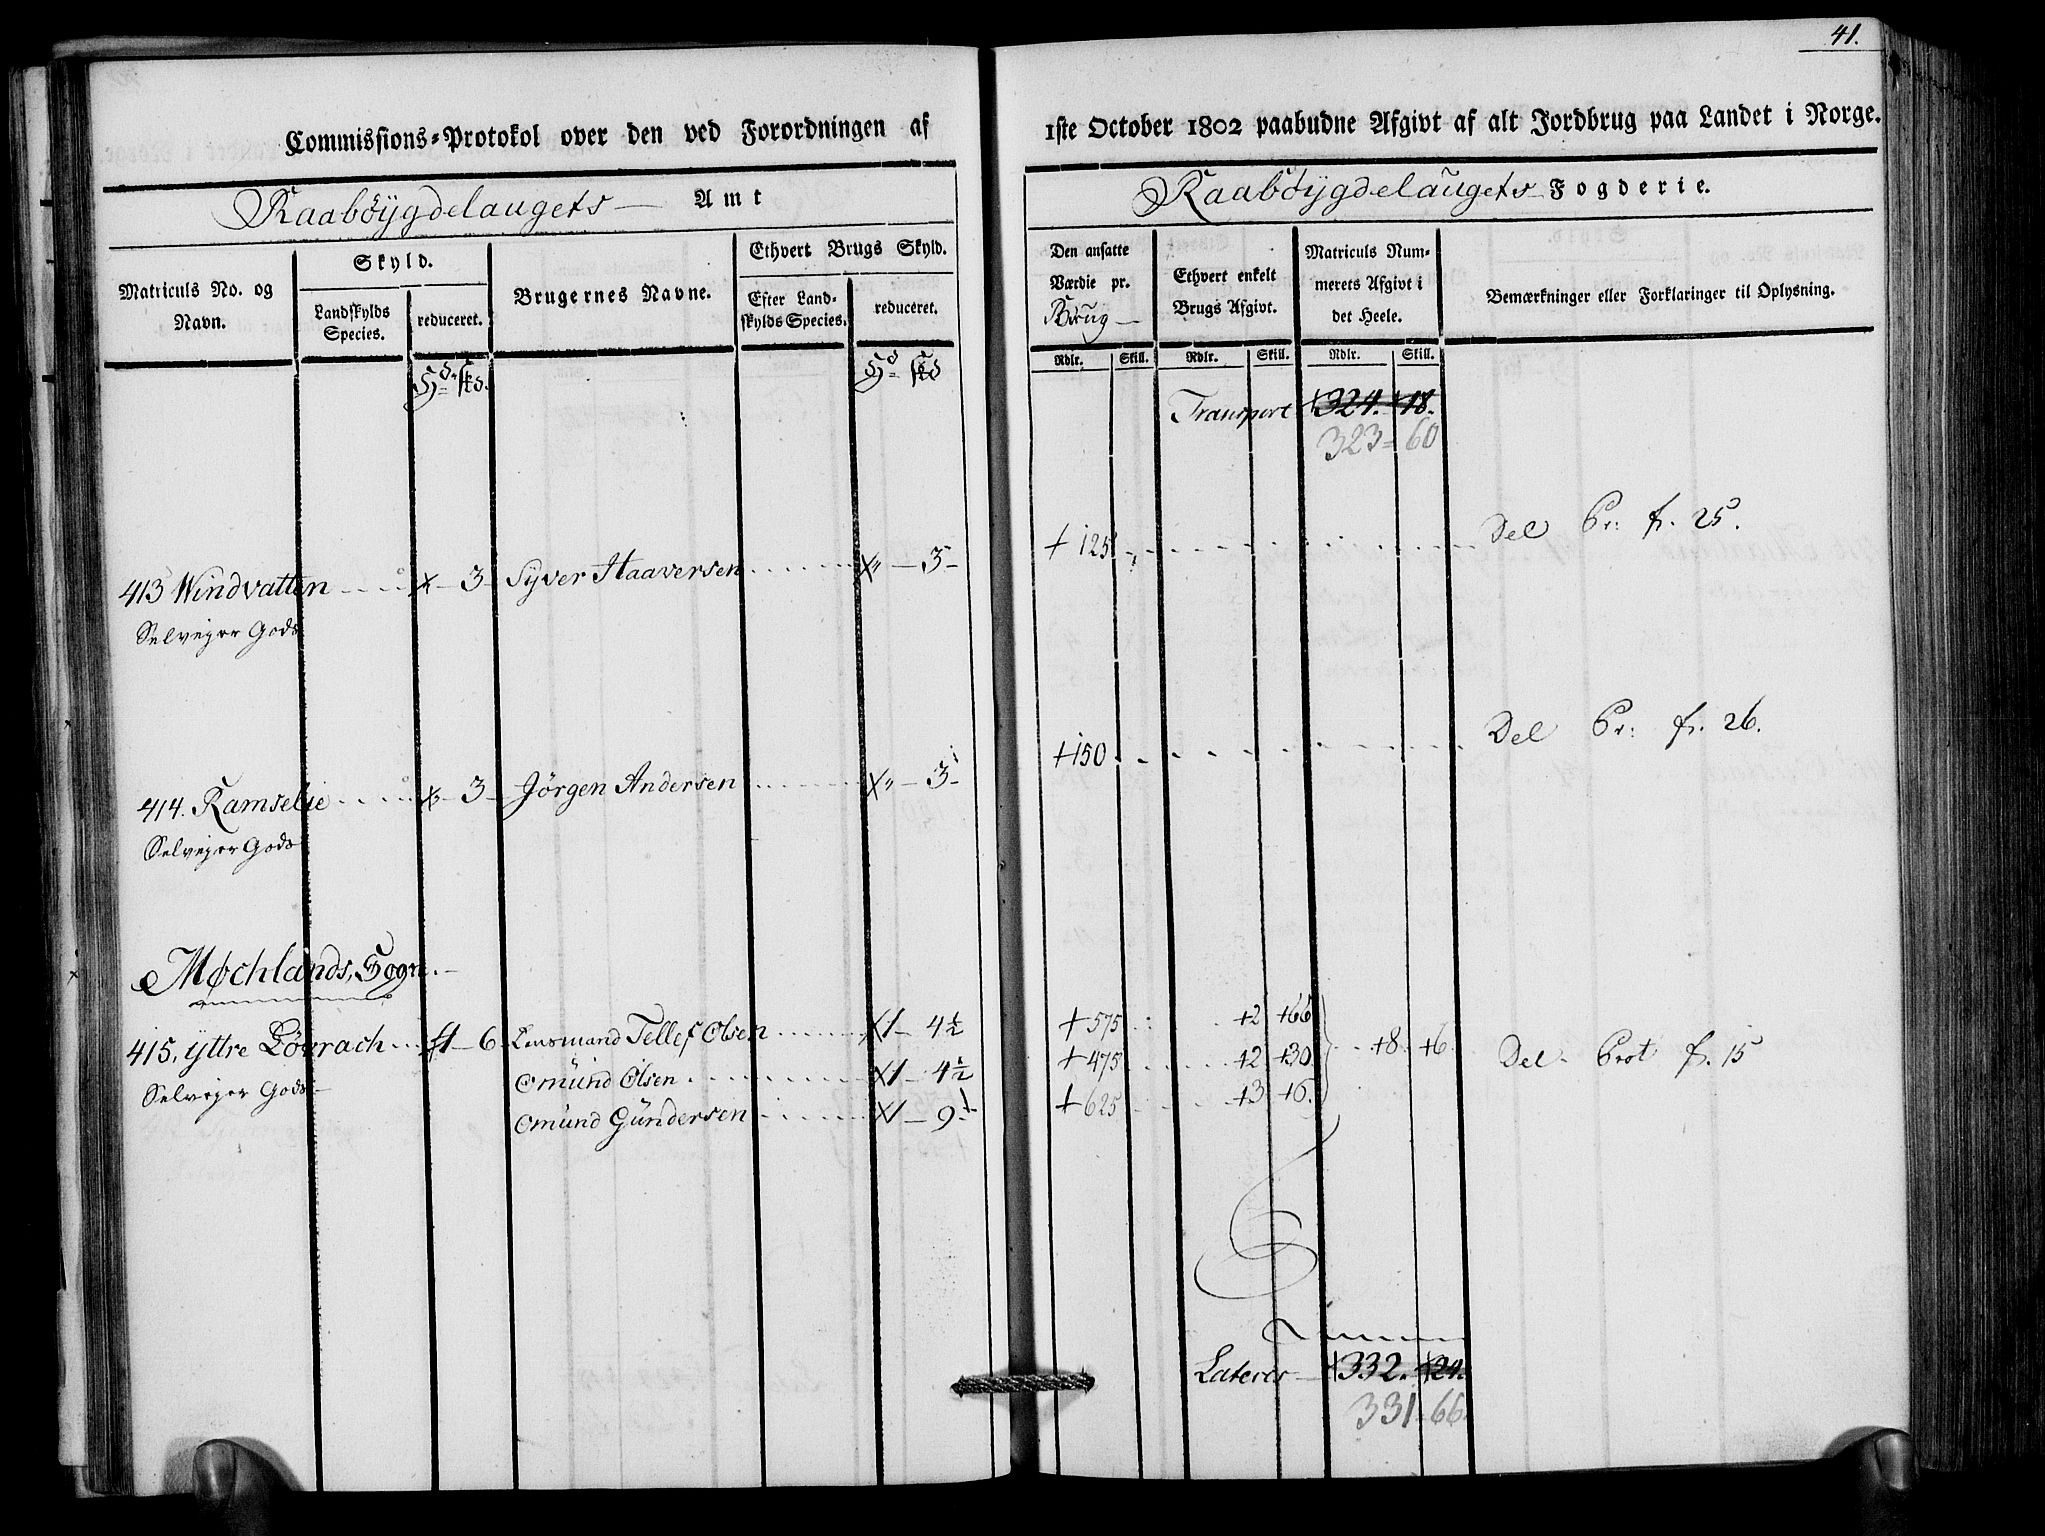 41.
Commissions-Protokol over den ved Forordningen af 1ste October 1802 paabudne Afgivt af alt Jordbrug paa Landet i Norge.
Raabøygdelaugets Amt
Raabøygdelaugets Fogderie.
Matriculs No. og Navn.
Skyld.
Landskylds Species.
reduceret.
Brugernes Navne.
Ethvert Brugs Skyld.
Efter Landskylds Species.
reduceret.
Den ansatte Værdie pr. Brug
Ethvert enkelt Brugs Afgivt.
Matriculs Nummerets Afgivt i det Heele.
Bemærkninger eller Forklaringer til Oplysning.
Rdlr. Skill. Rdlr. Skill. Rdlr. Skill.
Transport 324. 18.
323 = 60
413 Windvatten 3 Syver Haaversen 3 125 Del Pr: fr. 25.
Selvejer Gods
414. Ramselie 3 Jörgen Andersen 3 150 Del Pr: fr. 26.
Selvejer Gods
Møchlands, Sogn.
415, yttre Lövrach 1 6 Lensmand Tellef Olsen 1 4½ 575 2 66
Selvejer Gods Omund Olsen 1 4½ 475 2 30 8 6 Del Prot fr. 15
Omund Gundersen 1 9 625 3 6.
Lateres 332. 24.
331 = 66.